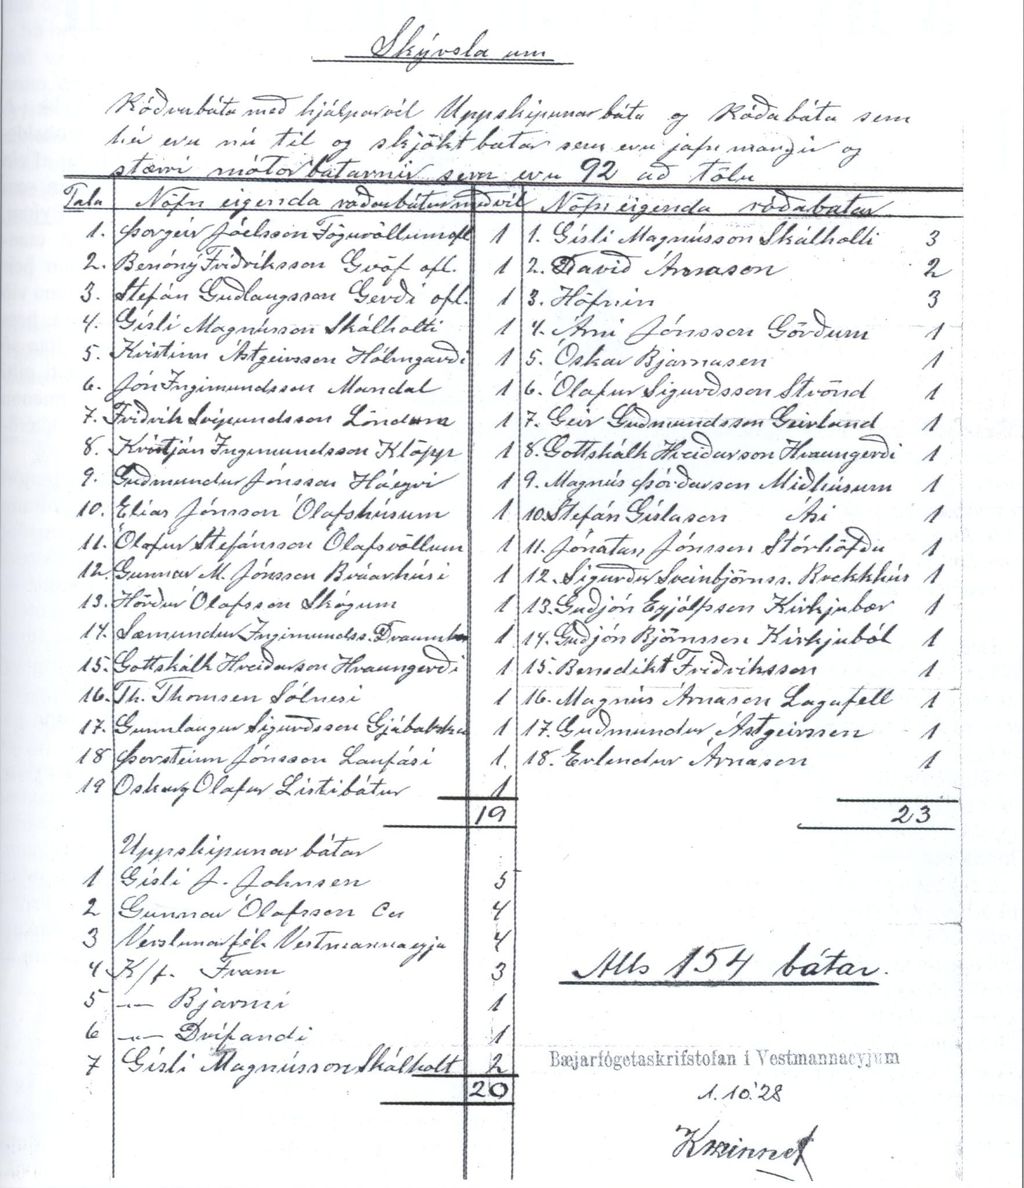 Skýrsla um
Róðrarbáta með hjálparvél Uppskipunarbáta og Róðabáta sem
hér eru nú til og skjökt batar sem eru jafn margir og
stærri mótorbátarnir sem eru 92 að tölu
Tala Nöfn eigenda róðarbátur með vél Nöfn eigenda róðrabatar
1. Þorgeir Jóelsson Fögruvöllum ofl 1 1. Gísli Magnússon Skálholti 3
2. Benóný Friðriksson Gröf ofl. 1 2. Davíð Árnason 2
3. Stefán Guðlaugsson Gerði ofl. 1 3. Höfnin 3
4. Gísli Magnússon Skálholti 1 4. Árni Jónsson Görðum 1
5. Kristinn Ástgeirsson Hólmgarði 1 5. Óskar Bjarnasen 1
6. Jón Ingimundsson Mandal 1 6. Ólafur Sigurðsson Strönd 1
7. Friðrik Svipmundsson Löndum 1 7. Geir Guðmundsson Geirland 1
8. Kristján Ingimundsson Klöpp 1 8. Gottskálk Hreiðarson Hraungerði 1
9. Guðmundur Jónsson Háeyri 1 9. Magnús Þórðarson Miðhúsum 1
10. Elías Jónsson Ólafshúsum 1 10. Stefán Gíslason Ási 1
11. Ólafur Stefánsson Ólafsvöllum 1 11. Jónatan Jónsson Stórhöfða 1
12. Gunnar M. Jónsson Brúarhúsi 1 12. Sigurður Sveinbjörnss. Brekkhús 1
13. Hörður Ólafsson Skógum 1 13. Guðjón Eyjólfsson Kirkjubær 1
14. Sæmundur Ingimundss. Draumb 1 14. Guðjón Björnsson Kirkjuból 1
15. Gottskálk Hreiðarson Hraungerði 1 15. Benedikt Friðriksson 1
16. Th. Thomsen Sólnesi 1 16. Magnús Árnason Lagafell 1
17. Gunnlaugur Sigurðsson Gjábakka 1 17. Guðmundur Ástgeirssen 1
18 Þorsteinn Jónsson Laufási 1. 18. Erlendur Árnason 1
19 Oskar og Olafur Listibátur 1
19 23
Uppskipunar bátar
1 Gísli J. Johnsen 5
2 Gunnar Ólafsson Co 4
3 Verslunarfél. Vestmannaeyja 4
4 K/f. Fram 3
5 -"- Bjarmi 1
6 -"- Drífandi 1
7 Gísli Magnússon Skálholt 2
20
Alls 154 bátar.
Bæjarfógetaskrifstofan í Vestmannaeyjum
1.10.'28